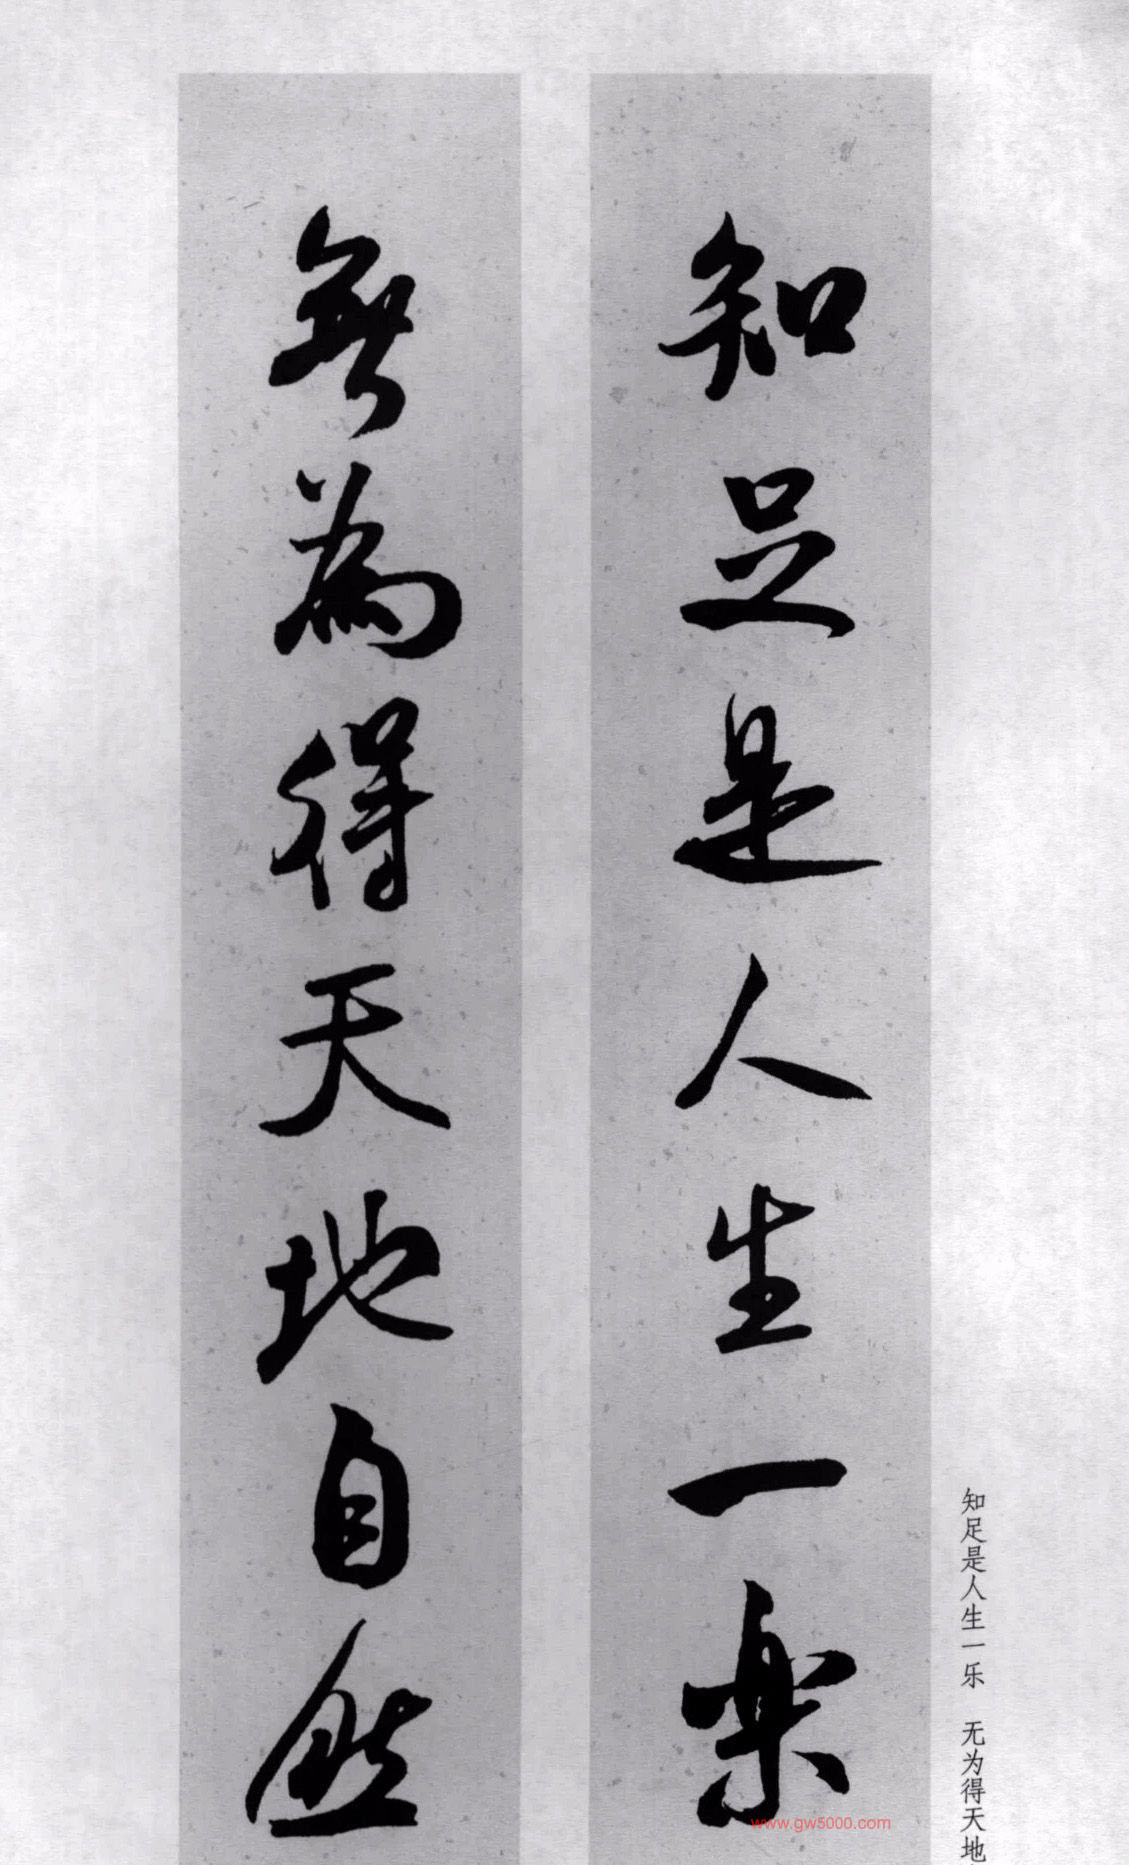 知足是人生一樂
無為得天地自然
知足是人生一乐 无为得天地
www.gw5000.com